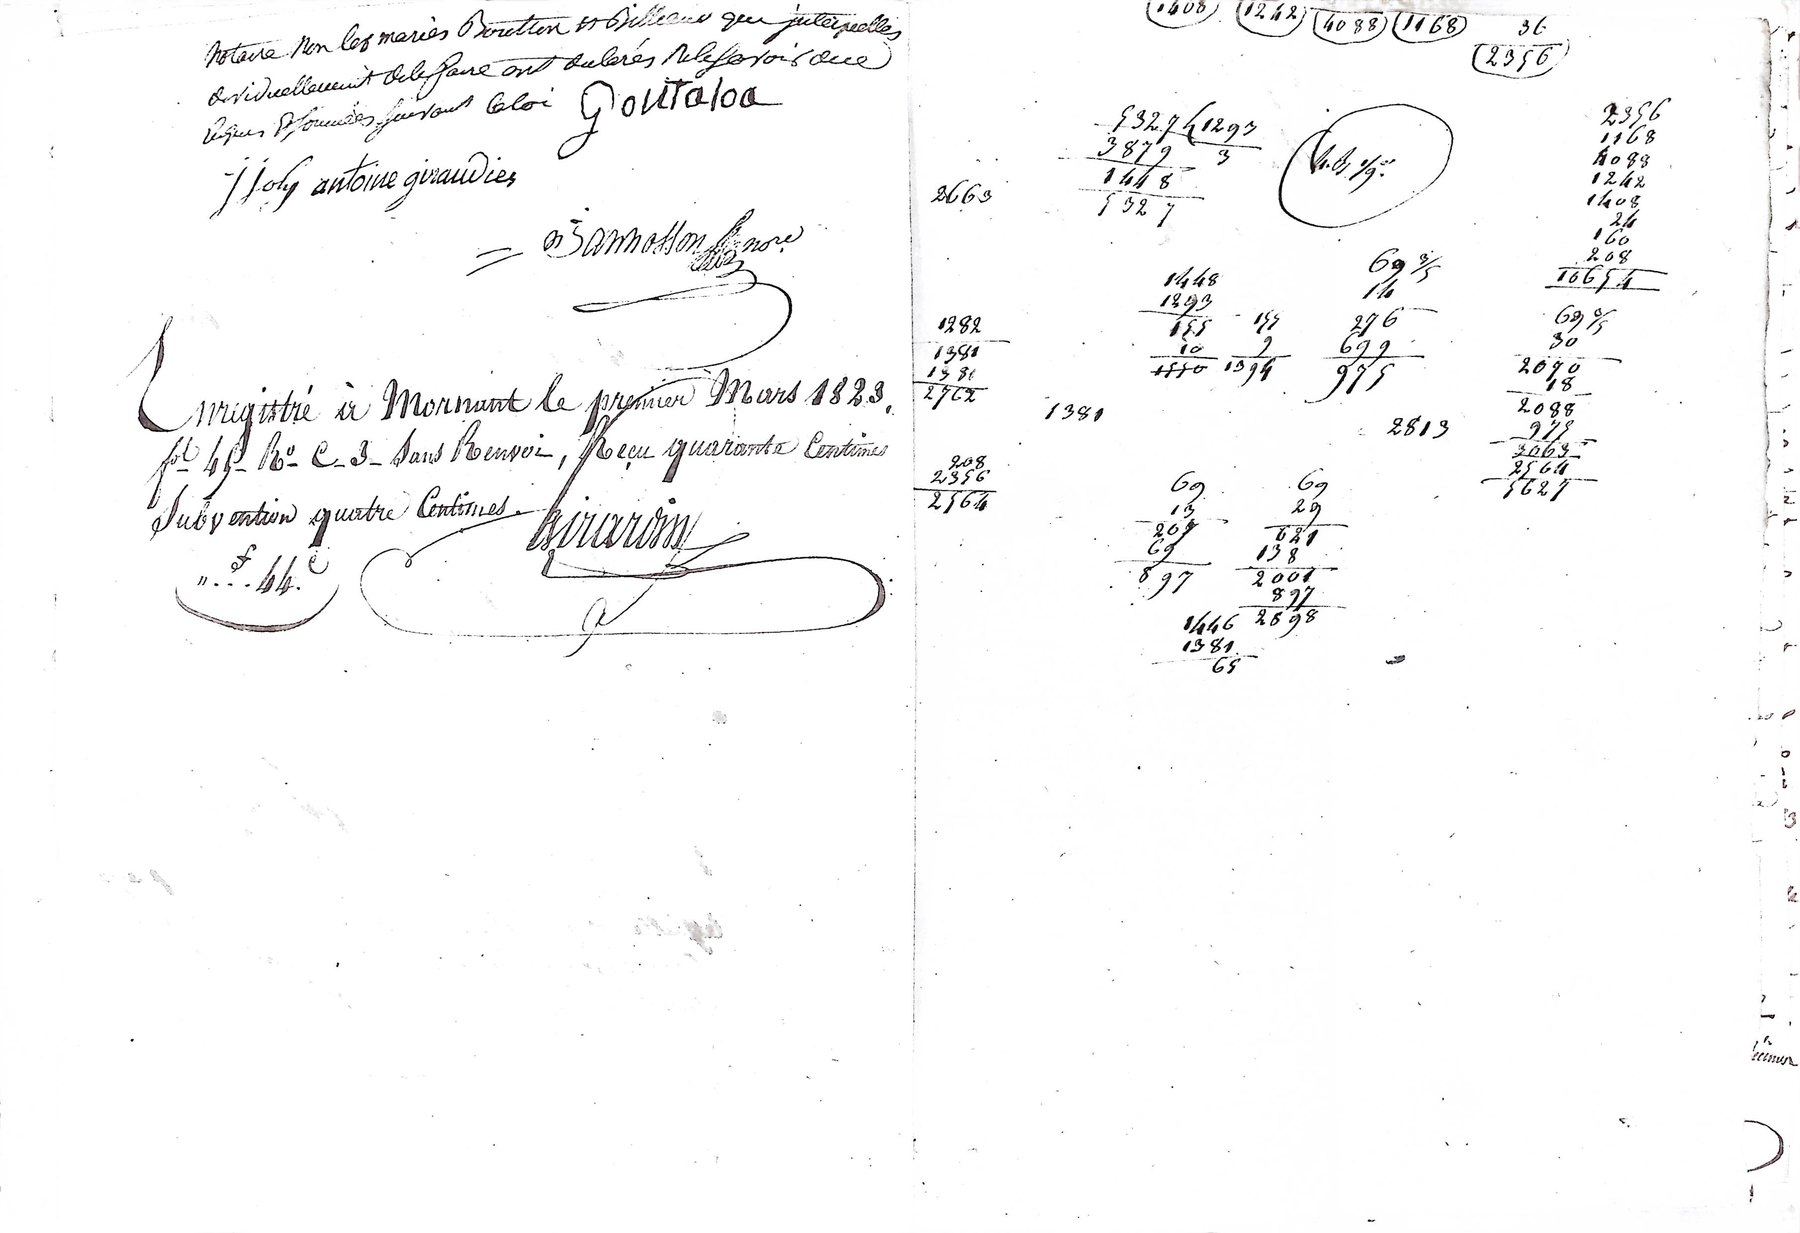 notaire non les mariés Boutton et Billeaux qui interpellés
individuellement de le faire ont déclarés ne le savoir deue
requis et sommés suivant la loi Goutaloa
jjoly antoine giraudier
Bannosson
Enregistré à Mornant le premier Mars 1823.
fol 45 Ro C-3- Sans Renvoi, Reçu quarante Centimes
Subvention quatre Centimes.
Girardin
f c
"...44.
1408 1242 4088 1168 36
2356
2663
5327 1293
3879 3
1448
5327
2356
1168
4088
1242
1408
24
160
208
10654
1448
1293
155 155
10 9
1550 1394
69 3/5
14
276
699
975
69 3/5
30
2070
18
2088
975
3063
2564
5627
1282
1381
1381
2762
1381
2813
208
2356
2564
69
13
207
69
897
69
29
621
138
2001
897
2898
1446
1381
65